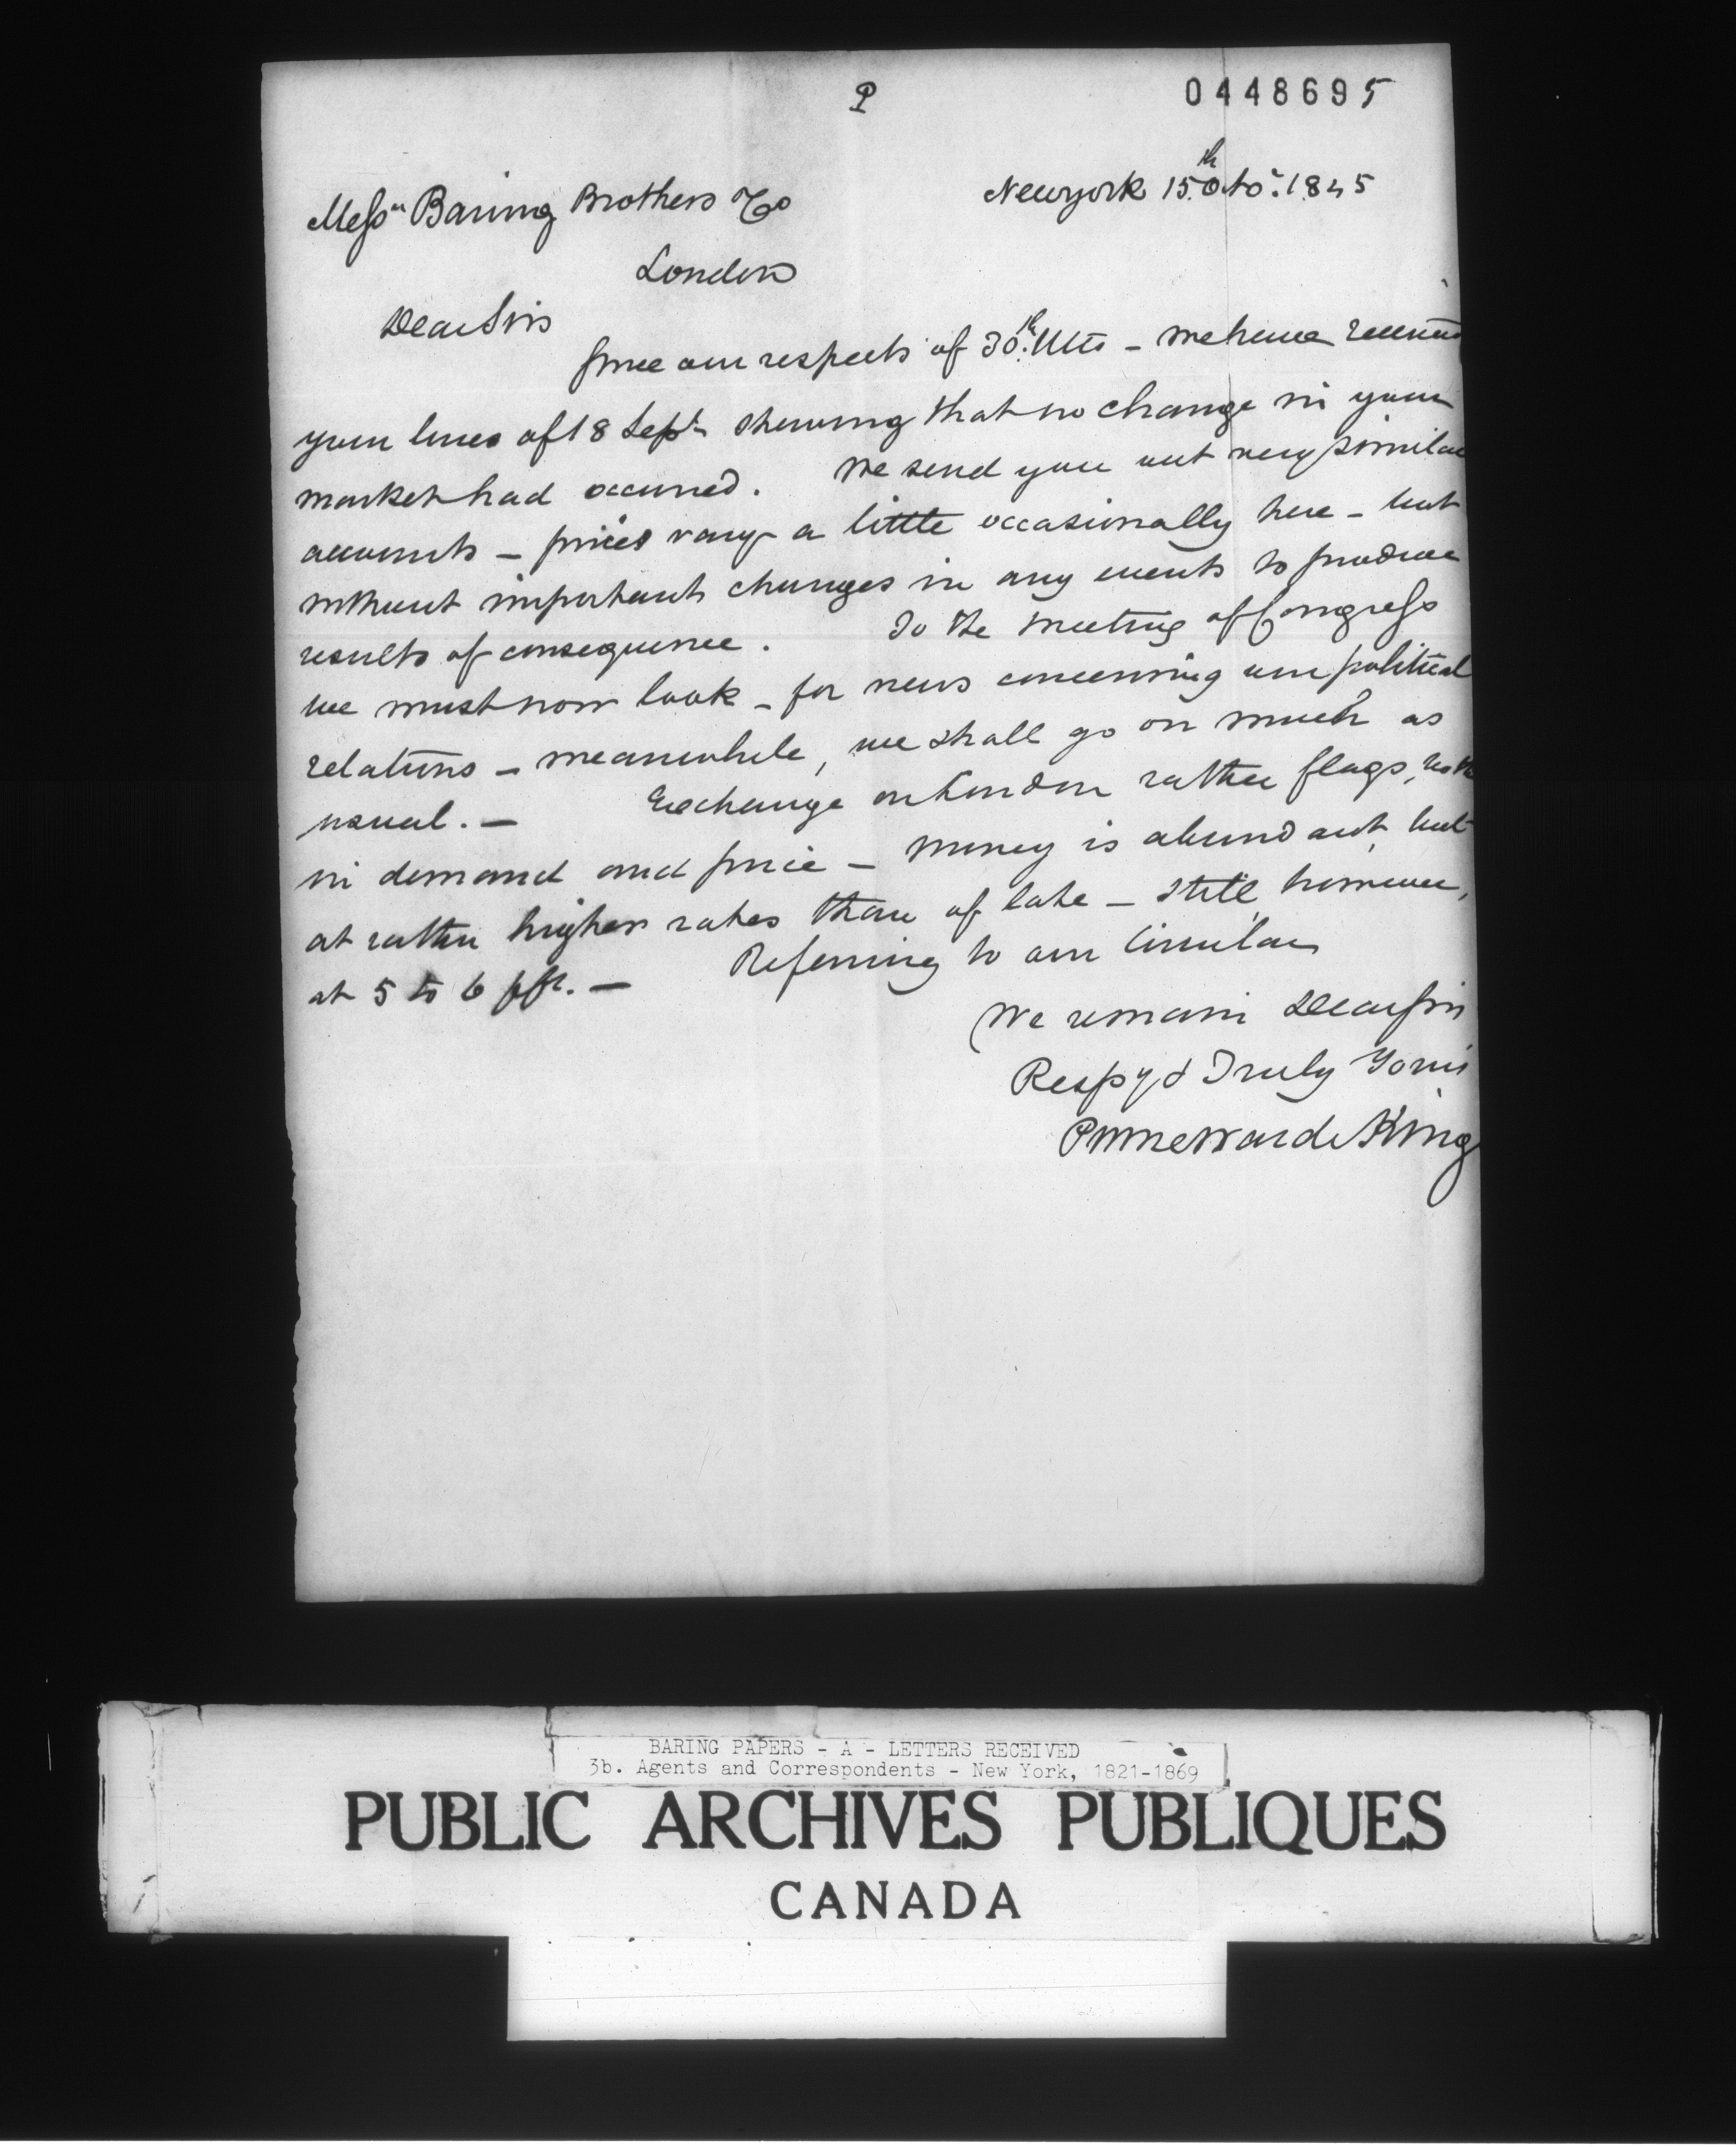 P
0448695
Newyork 15th Octor. 1845
Messrs Baring Brothers & Co
London
Dear Sirs
Since our respects of 30th Ulto - we have received
your lines of 18 Sept shewing that no change in your
market had occurred. We send you but very similar
accounts - prices vary a little occasionally here - but
without important changes in any events to produce
results of consequence. To the meeting of Congress
we must now look - for news concerning our political
relations - meanwhile, we shall go on much as
usual. - Exchange on London rather flags, both
in demand and price - Money is abundant, but
at rather higher rates than of late - still, however,
at 5 to 6 p%. - Referring to our Circular
We remain Dear Sirs
Respy & Truly Yours
Prime Ward & King
BARING PAPERS - A - LETTERS RECEIVED
3b. Agents and Correspondents - New York, 1821-1869
PUBLIC ARCHIVES PUBLIQUES
CANADA